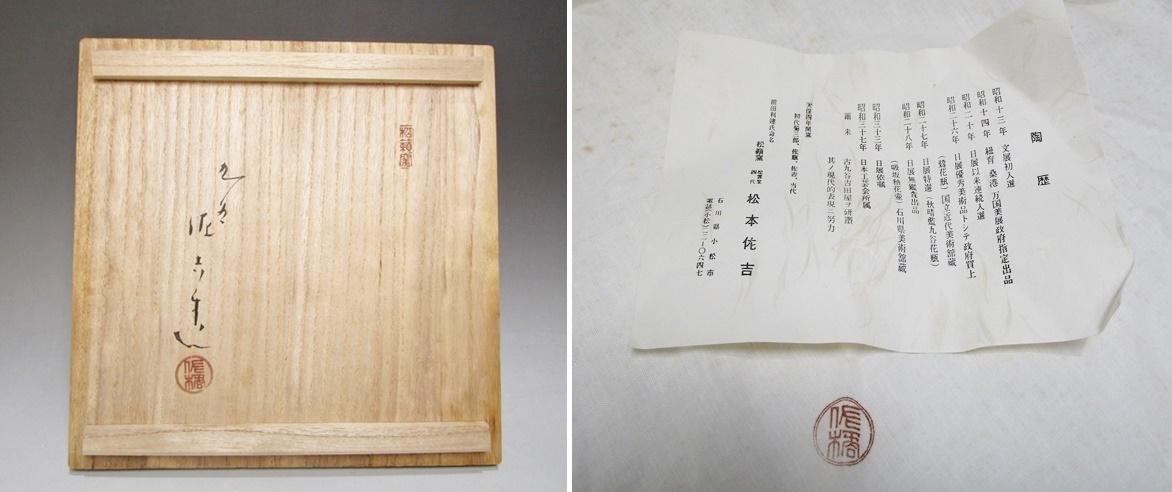 松韻窯
九谷
佐吉造
陶歴
昭和十三年 文展初入選
昭和十四年 紐育 桑港 万国美展政府指定出品
昭和二十年 日展以来連続入選
昭和二十六年 日展優秀美術品トシテ政府買上
(鷺花瓶)国立近代美術館蔵
昭和二十七年 日展特選(秋晴藍九谷花瓶)
昭和二十八年 日展無鑑査出品
(吸坂柚花壷)石川県美術館蔵
昭和三十三年 日展依嘱
昭和三十七年 日本工芸会所属
爾来 古九谷吉田屋ヲ研鑽
其ノ現代的表現ニ努力
天保四年開窯
初代菊三郎、佐瓶、佐吉、当代
前田利建氏命名
松韻窯 四代 松本佐吉
石川県小松市
電話(小松)二二-〇六四七